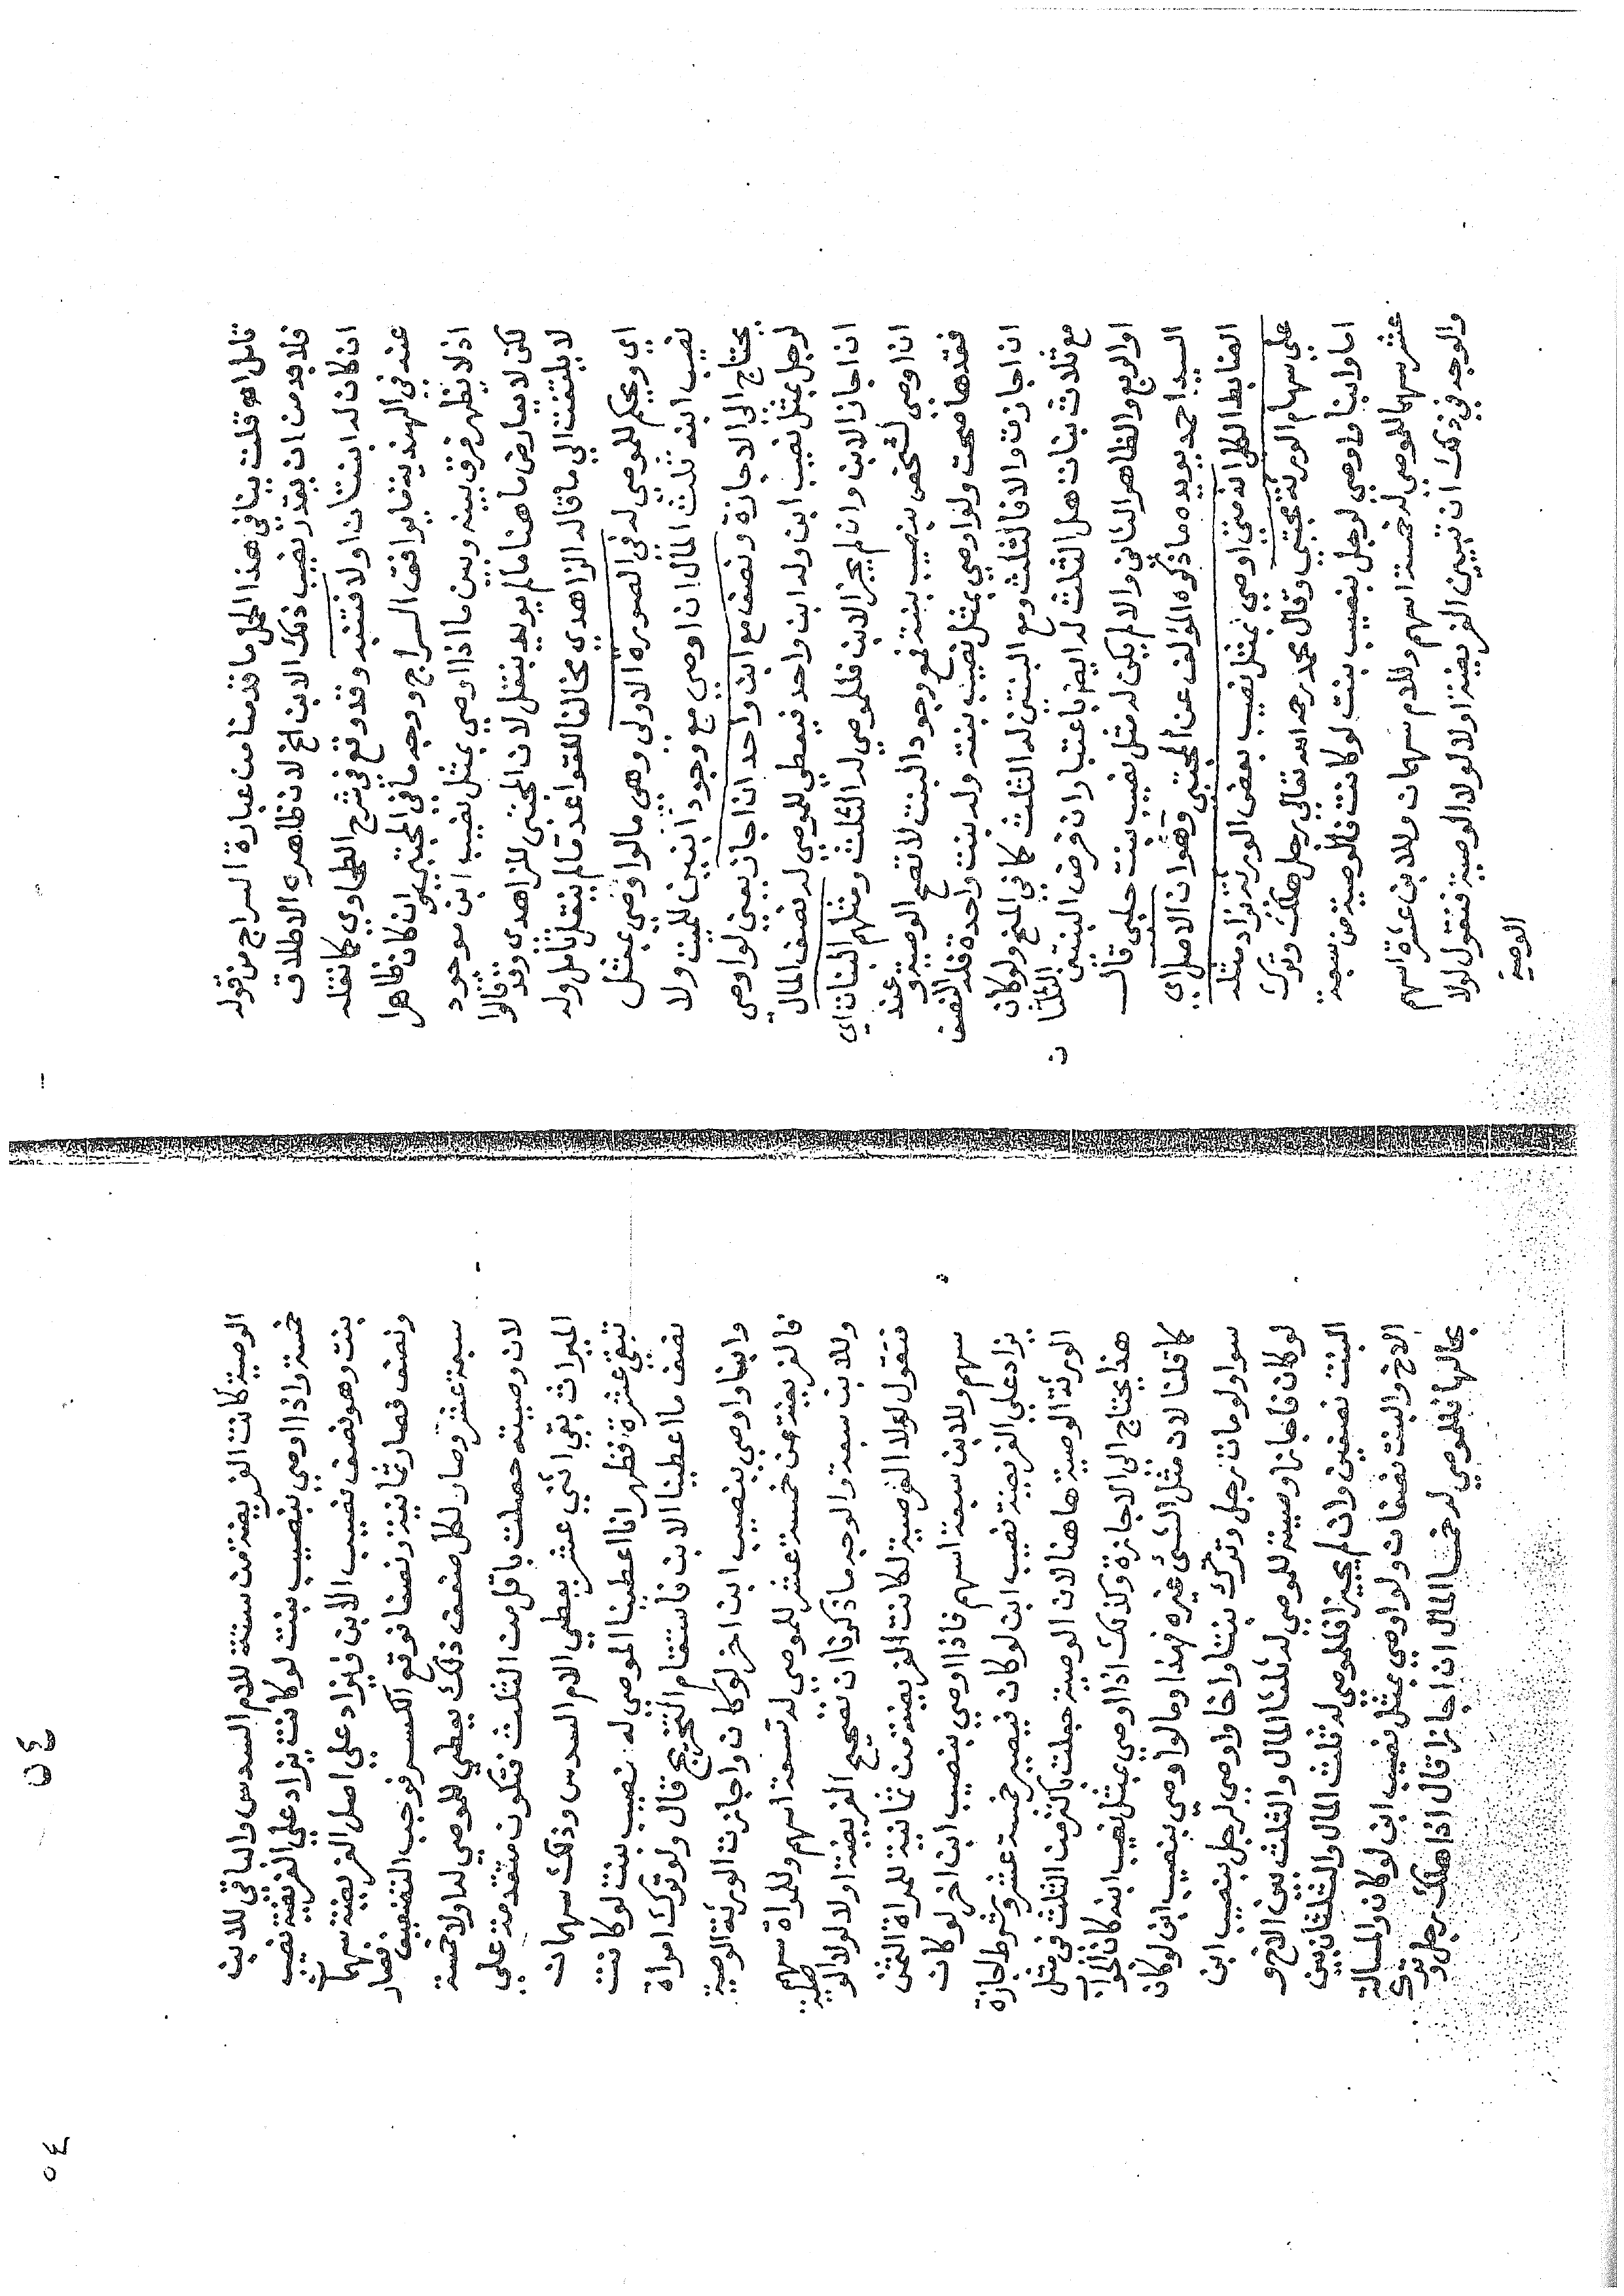 تامل اهـ قلت ينافي هذا المحل ما قدمنا من عبارة السراج من قوله
فلا بد من ان يقدر نصيب ذلك الابن الخ لان ظاهره الاطلاق
ان كان له ابنتان اولا فتنبه وقد وقع في شرح الطحاوي كما نقله
عنه في الهندية ما يوافق السراج ووجه ما في المجتبى ان كان ظاهرا
اذ لا يظهر فرق بينه وبين ما اذا اوصي بمثل نصيب ابن موجود
لكن لا يعارض ما هنا ما لم يويد بنقل لان المجتبى للزاهدي وقد قالوا
لا يلتفت الي ما قاله الزاهدي مخالفا للقواعد ما لم ينقل تامل وله
اي ويحكم للموصي له في الصورة الاولى وهي ما لو اوصي بمثل
نصيب ابنه ثلث المال ان اوصي مع وجود ابنين للميت ولا
يحتاج الي الاجازة ونصف مع ابن واحد ان اجاز يعني لو اوصى
لرجل بمثل نصيب ابن وله ابن واحد فيعطي للموصي له نصف المال
ان اجاز الابن وان لم يجز الابن فللموصي له الثلث ومثلهم البنات اي
ان اوصي لشخص بنصيب بنته فمع وجود البنت لا تصح الوصية وعند
فقدها صحت ولو اوصي بمثل نصيب بنته وله بنت واحدة فله النصف
ان اجازت والا فالثلث ومع البنتين له الثلث كما في المنح ولو كان
مع ثلاث بنات هل الثلث له ايضا باعتبار ان فرض البنتين الثلثا
ن
او الربع والظاهر الثاني والا لم يكن له مثل نصيب بنت حلبي قال
السيد احمد يويده ما ذكره المؤلف عن المجتبى وهو ان الاصل اي
الضابط الكلي انه متى اوصي بمثل نصيب بعض الورثة يزاد مثله
علي سهام الورثة مجتبي وقال محمد رحمه الله تعالي رجل هلك وترك
اما وابنا واوصي لرجل بنصيب بنت لو كانت فالوصية من سبعة
عشر سهما للموصي له خمسة اسهم وللام سهمان وللابن عشرة اسهم
والوجه في ذلك ان تبين الفريضة اولا لولا الوصية فنقول لولا
الوصية
الوصية كانت الفريضة من ستة للام السدس والباقي للابن
خمسة واذا اوصي بنصيب بنت لو كانت يزاد علي الفريضة نصيب
بنت وهو نصف نصيب الابن فيزاد علي اصل الفريضة سهما
ونصف فصار ثمانية ونصفا فوقع الكسر فوجب التضعيف فصار
سبعة عشر وصار لكل ضعف ذلك يعطي للموصي له اولا خمسة
لان وصيته حصلت باقل من الثلث فتكون متقدمة علي
الميراث بقي اثني عشر يعطي الام السدس وذلك سهمان
تبقي عشرة فظهر انا اعطينا الموصي له نصيب بنت لو كانت
نصف ما اعطينا الابن فاستقام التخريج قال ولو ترك امراة
وابنا واوصي بنصيب ابن اخر لو كان واجازت الورثة الوصية
فالفريضة من خمسة عشر للموصي له تسعة اسهم وللمراة سهم
وللابن سبعة والوجه ما ذكرنا ان تصحح الفريضة اولا لولا الوصية
فنقول لولا الفرضية لكانت الفريضة من ثمانية للمراة الثمن
سهم وللابن سبعة اسهم فاذا اوصي بنصيب ابن اخر لو كان
يزاد علي الفريضة نصيب ابن لو كان فيصير خمسة عشر وشرط اجازة
الورثة الوصية هاهنا لان الوصية جعلت باكثر من الثلث في مثل
هذا يحتاج الي الاجازة وكذلك اذا اوصي بمثل نصيب ابنه كان الجواب
كما قلنا لان مثل الشئ غيره فهذا وما لو اوصي بنصيب ابن لو كان
سوا ولو مات رجل وترك بنتا واخا واوصي لرجل بنصيب ابن
لو كان فاجازا وصيته للموصي له ثلثا المال والثلث بين الاخ و
البنت نصفين وان لم يجيزا فللموصي له ثلث المال والثلثان بين
الاخ والبنت نصفان ولو اوصي بمثل نصيب ابن لو كان والمسالة
بحالها فللموصي له خمسا المال ان اجازا قال اذا هلك رجل و